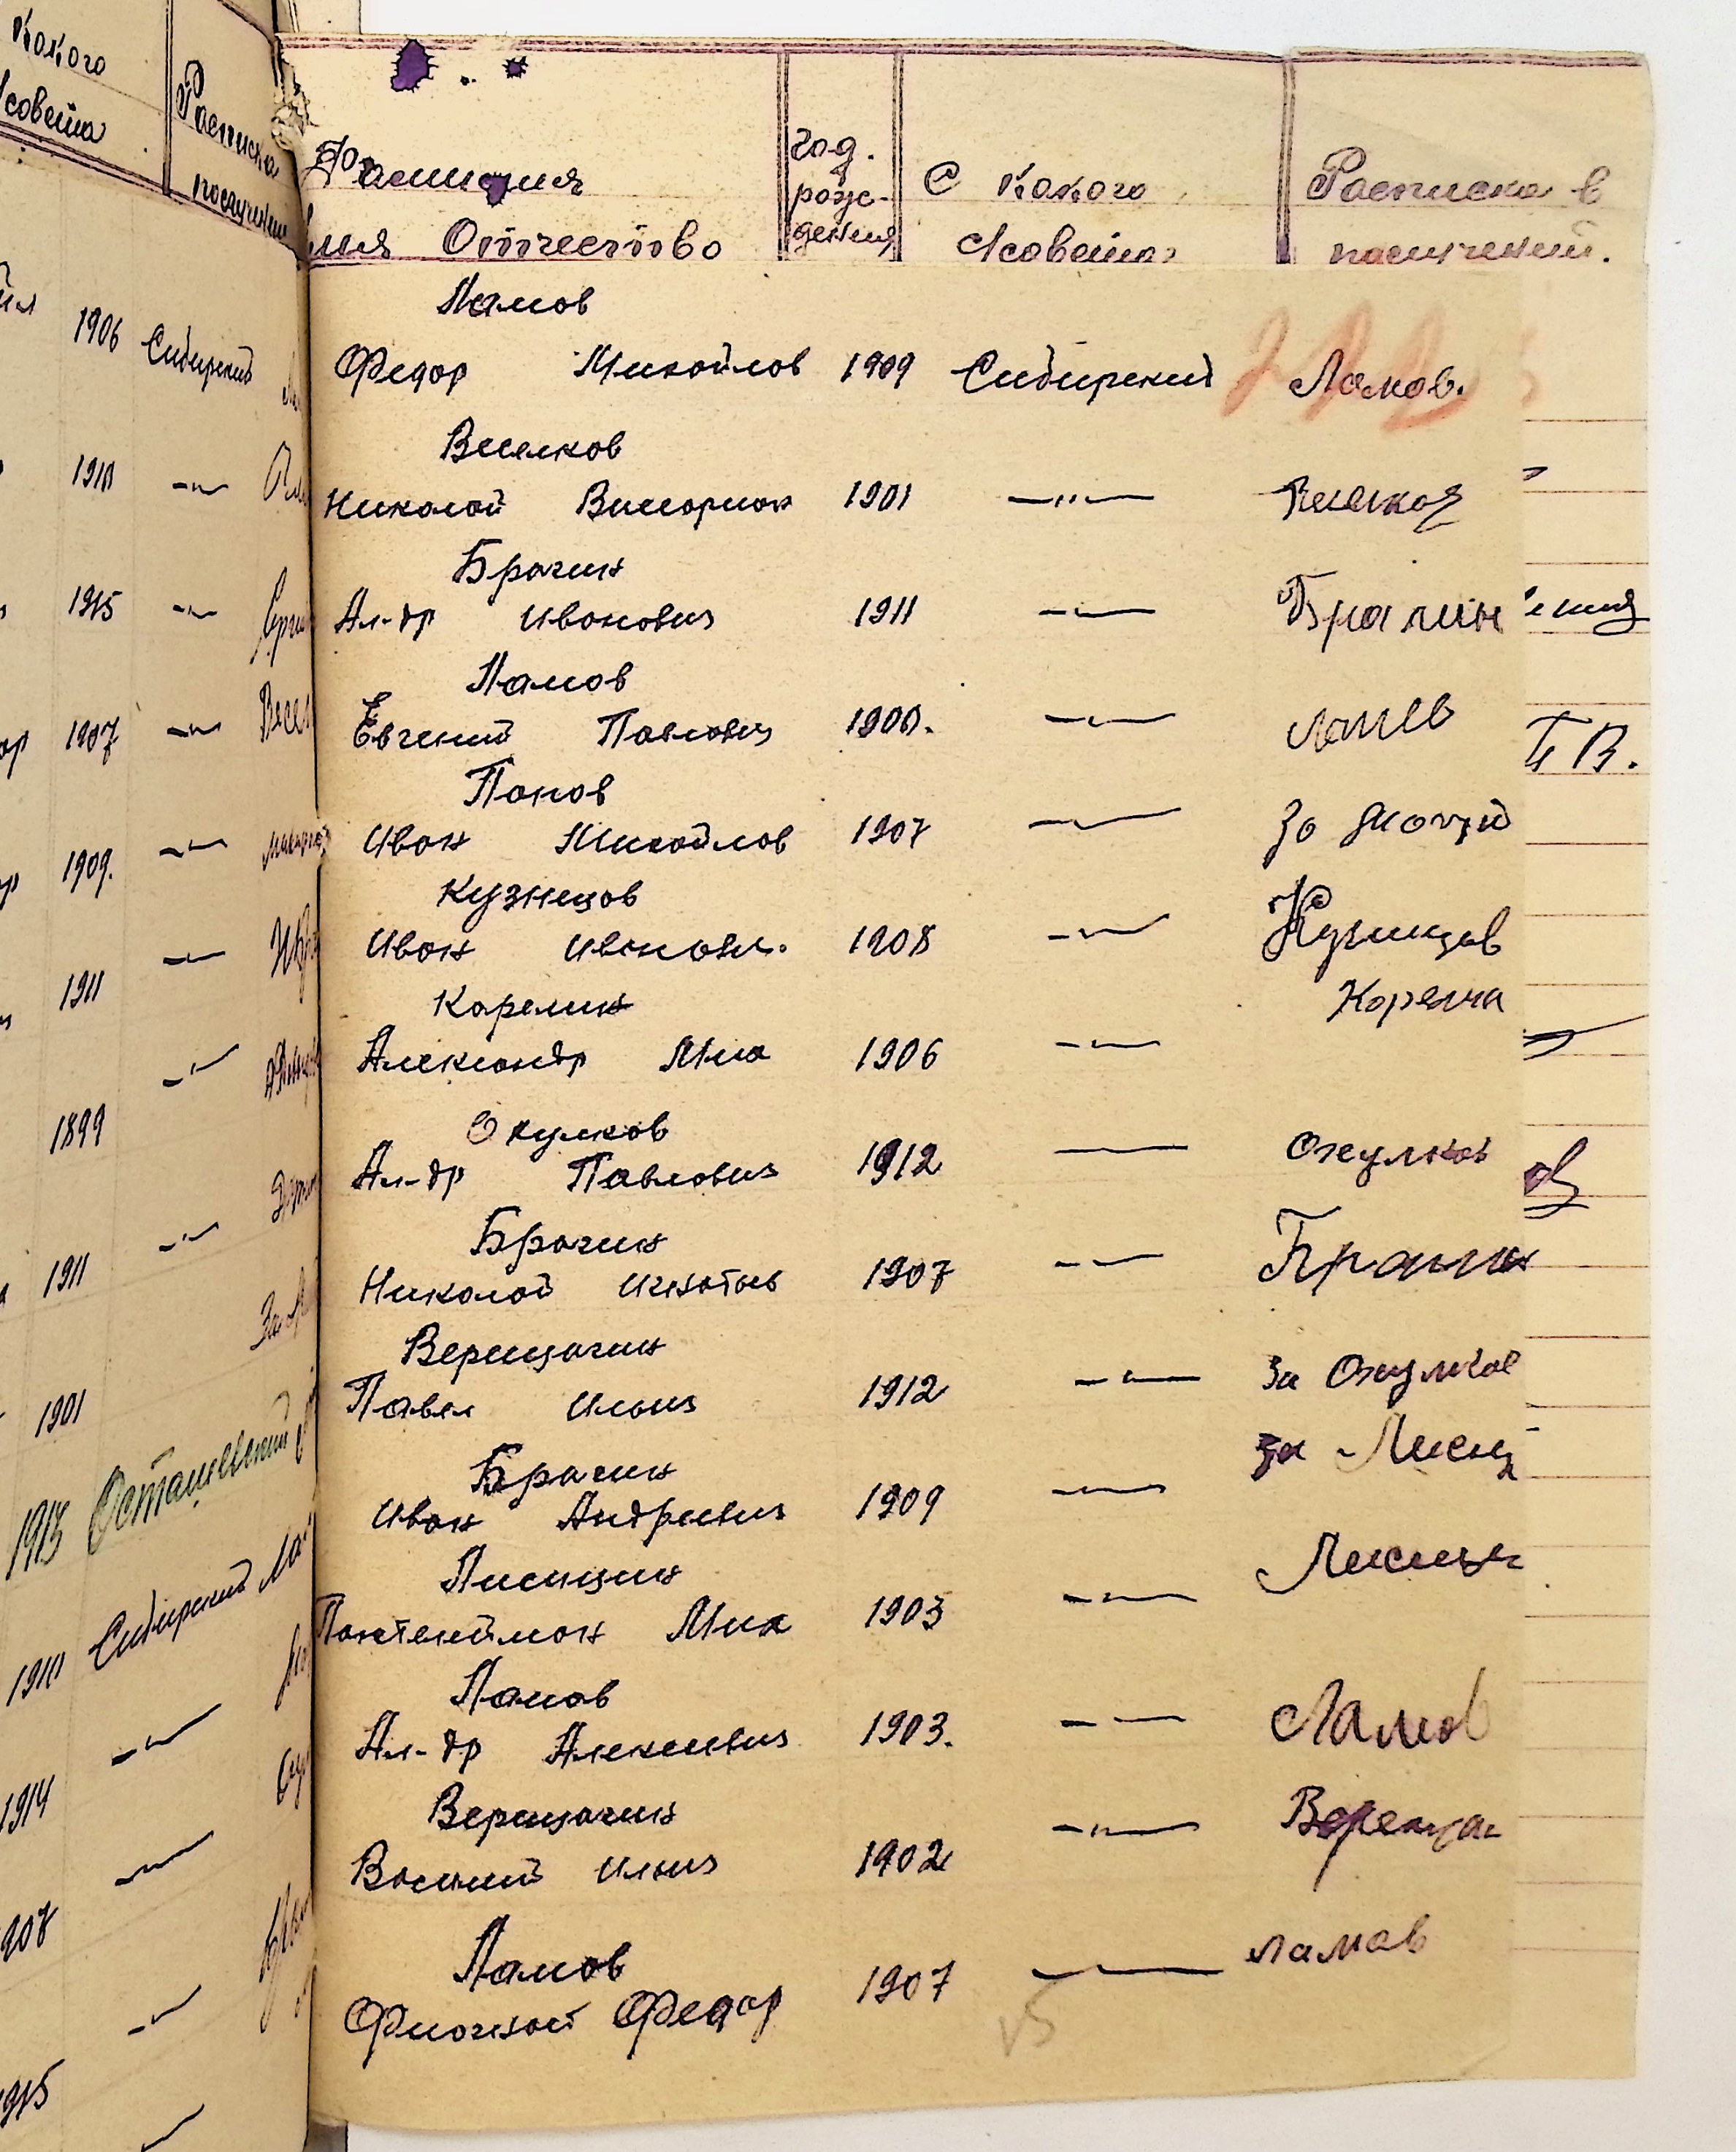 Кокого
Расписка
получении
Фамилия
Имя Отчество
Год.
рож-
дения
С Кокого
С/совета
Расписка в
получении.
Ламов
Федор Михайлов 1909 Сибирский Ламов.
Веселков
Николай Виссарион 1901 —"— Веселков
Брагин
Ал-др Иванович 1911 —"— Брагин
Ламов
Евгений Павлович 1900. —"— Ламов
Попов
Иван Михайлов 1907 —"—
Кузнецов
Иван Иванович. 1908 —"— Кузнецов
Карелин
Александр Мих 1906 —"— Карелин
Окулков
Ал-др Павлович 1912 — Окулков
Брагин
Николай Игнатьев 1907 —"— Брагин
Верещагин
Павел Ильич 1912 —"— за Окулков
Брагин
Иван Андреевич 1909 —"— за Лисиц
Лисицин
Пантелеймон Мих 1903 —"— Лисицы
Ламов
Ал-др Алексеевич 1903. —"— Ламов
Верещагин
Василий Ильич 1902 —"— Верещаг
Ламов
Федор 1907 —"— ламов
1906 Сибирский
1910 —"—
1915 —"—
1907 —"—
1909. —"—
1911 —"—
1899 —"—
1911 —"—
1901
1913 Осташевский
1910 Сибирский
1914 —"—